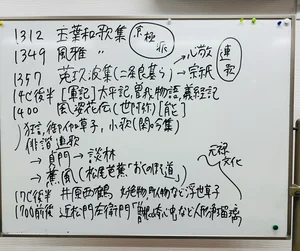 1312 玉葉和歌集 京極派
1349 風雅 〃
1357 菟玖波集(二条良基ら) →心敬 →宗祇 連歌
14C後半 [軍記] 太平記, 曽我物語, 義経記
1400 風姿花伝(世阿弥) [能]
狂言, 御伽草子, 小歌(閑吟集)
俳諧連歌
→ 貞門 → 談林
→ 蕉風(松尾芭蕉「おくのほそ道」)
元禄文化
17C後半 井原西鶴 好色物, 町人物など浮世草子
1700前後 近松門左衛門「曽根崎心中」など人形浄瑠璃